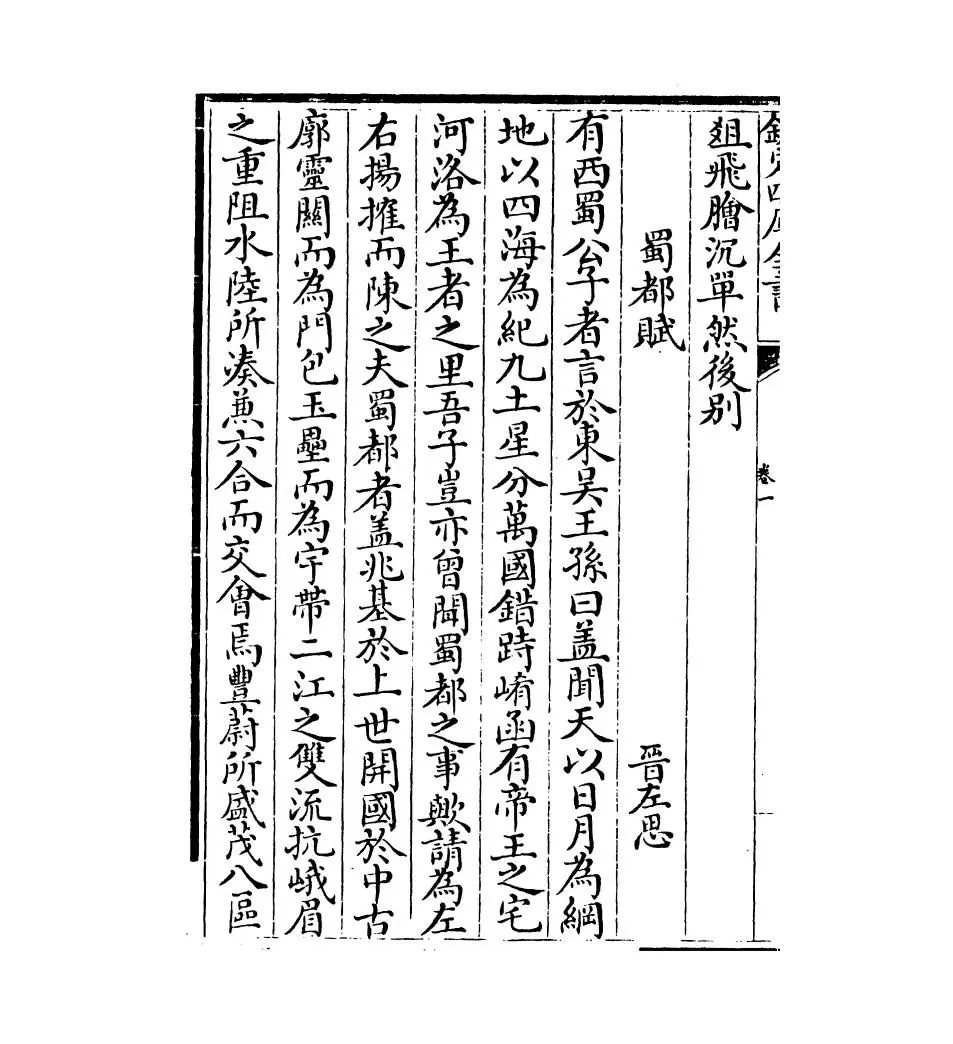 欽定四庫全書
卷一
爼飛膾沉單然後别
蜀都賦 晉左思
有西蜀公子者言於東吴王孫曰盖聞天以日月為綱
地以四海為紀九土星分萬國錯跱崤函有帝王之宅
河洛為王者之里吾子豈亦曾聞蜀都之事歟請為左
右揚搉而陳之夫蜀都者盖兆基於上世開國於中古
廓靈關而為門包玉壘而為宇帶二江之雙流抗峨眉
之重阻水陸所凑兼六合而交會焉豐蔚所盛茂八區